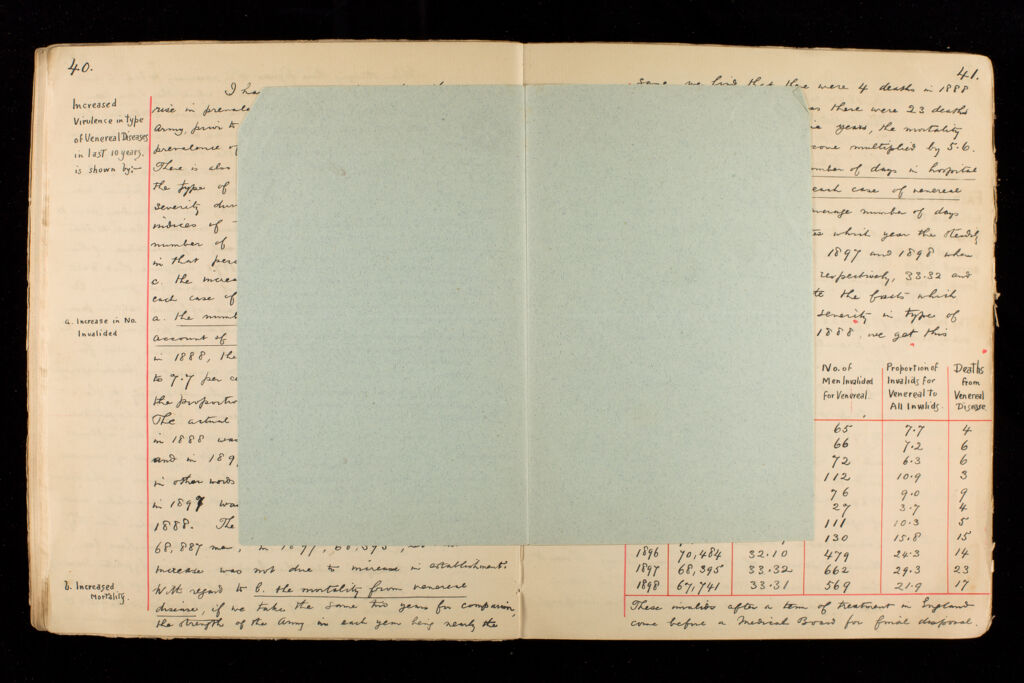 40.
Increased
Virulence in type
of Venereal Diseases
in last 10 years.
is shown by:-
I
rise in
Army, prior to
prevalence of
There is also
the type of
severity
indices of
number of
in that
c. the
each case of
a. Increase in No.
Invalided
a. the
account of
in 1888, the
to 7.7 per
the
The actual
in 1888 was
and in
in other words
in 1897 was
1888. The
68,887 men, in 1897, 68,395,
increase was not due to increase in establishment.
b. Increased
Mortality.
With regard to b. the mortality from venereal
disease, if we take the same two years for comparison,
the strength of the Army in each year being nearly the
41.
same we find that there were 4 deaths in 1888
there were 23 deaths
years, the mortality
multiplied by 5.6.
number of days in hospital
each case of venereal
average number of days
which year the steadily
1897 and 1898 when
respectively, 33.32 and
the facts which
severity in type of
1888, we get this
No. of
Men Invalided
for Venereal.
Proportion of
Invalids for
Venereal to
All Invalids.
Deaths
from
Venereal
Disease
65 7.7 4
66 7.2 6
72 6.3 6
112 10.9 3
76 9.0 9
27 3.7 4
111 10.3 5
130 15.8 15
1896 70,484 32.10 479 24.3 14
1897 68,395 33.32 662 29.3 23
1898 67,741 33.31 569 21.9 17
These invalids after a term of treatment in England
come before a Medical Board for final disposal.